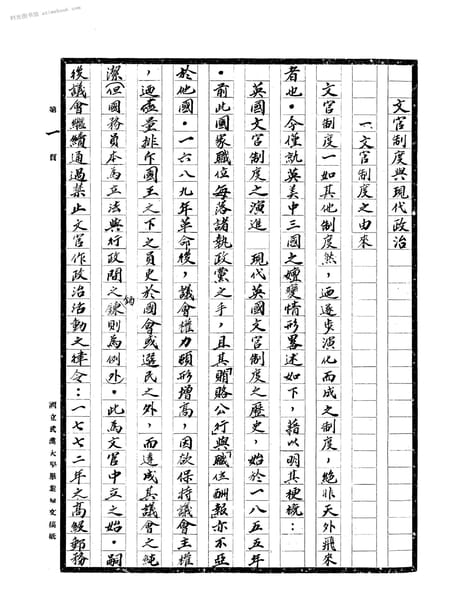 文官制度與現代政治
一、文官制度之由來
文官制度一如其他制度然,迺逐步演化而成之制度,絕非天外飛來
者也。今僅就英美中三國之嬗變情形畧述如下,藉以明其梗概:
英國文官制度之演進 現代英國文官制度之歷史,始於一八五五年
。前此國家職位每落諸執政黨之手,且其「賄賂公行」與「職位酬報」亦不亞
於他國。一六八九年革命後,議會權力頓形增高,因欲保持議會主權
,迺儘量排斥國王之下之員吏於國會或選民之外,而達成其議會之純
潔(但國務員本為立法與行政間之鈎鍊則為例外。此為文官中立之始。嗣
後議會繼續通過禁止文官作政治活動之律令:一七七二年之高級郵務
第一頁
國立武漢大學畢業論文稿紙